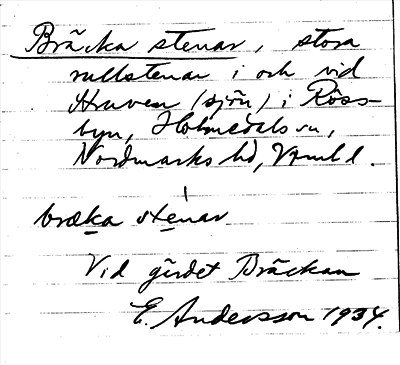 Bräcka stenar, stora
rullstenar i och vid
Kraven (sjön) i Röss-
byn, Holmedals sn,
Nordmarks hd, Vrml l.
bræka stenar
Vid gärdet Bräckan
E. Andersson 1934.